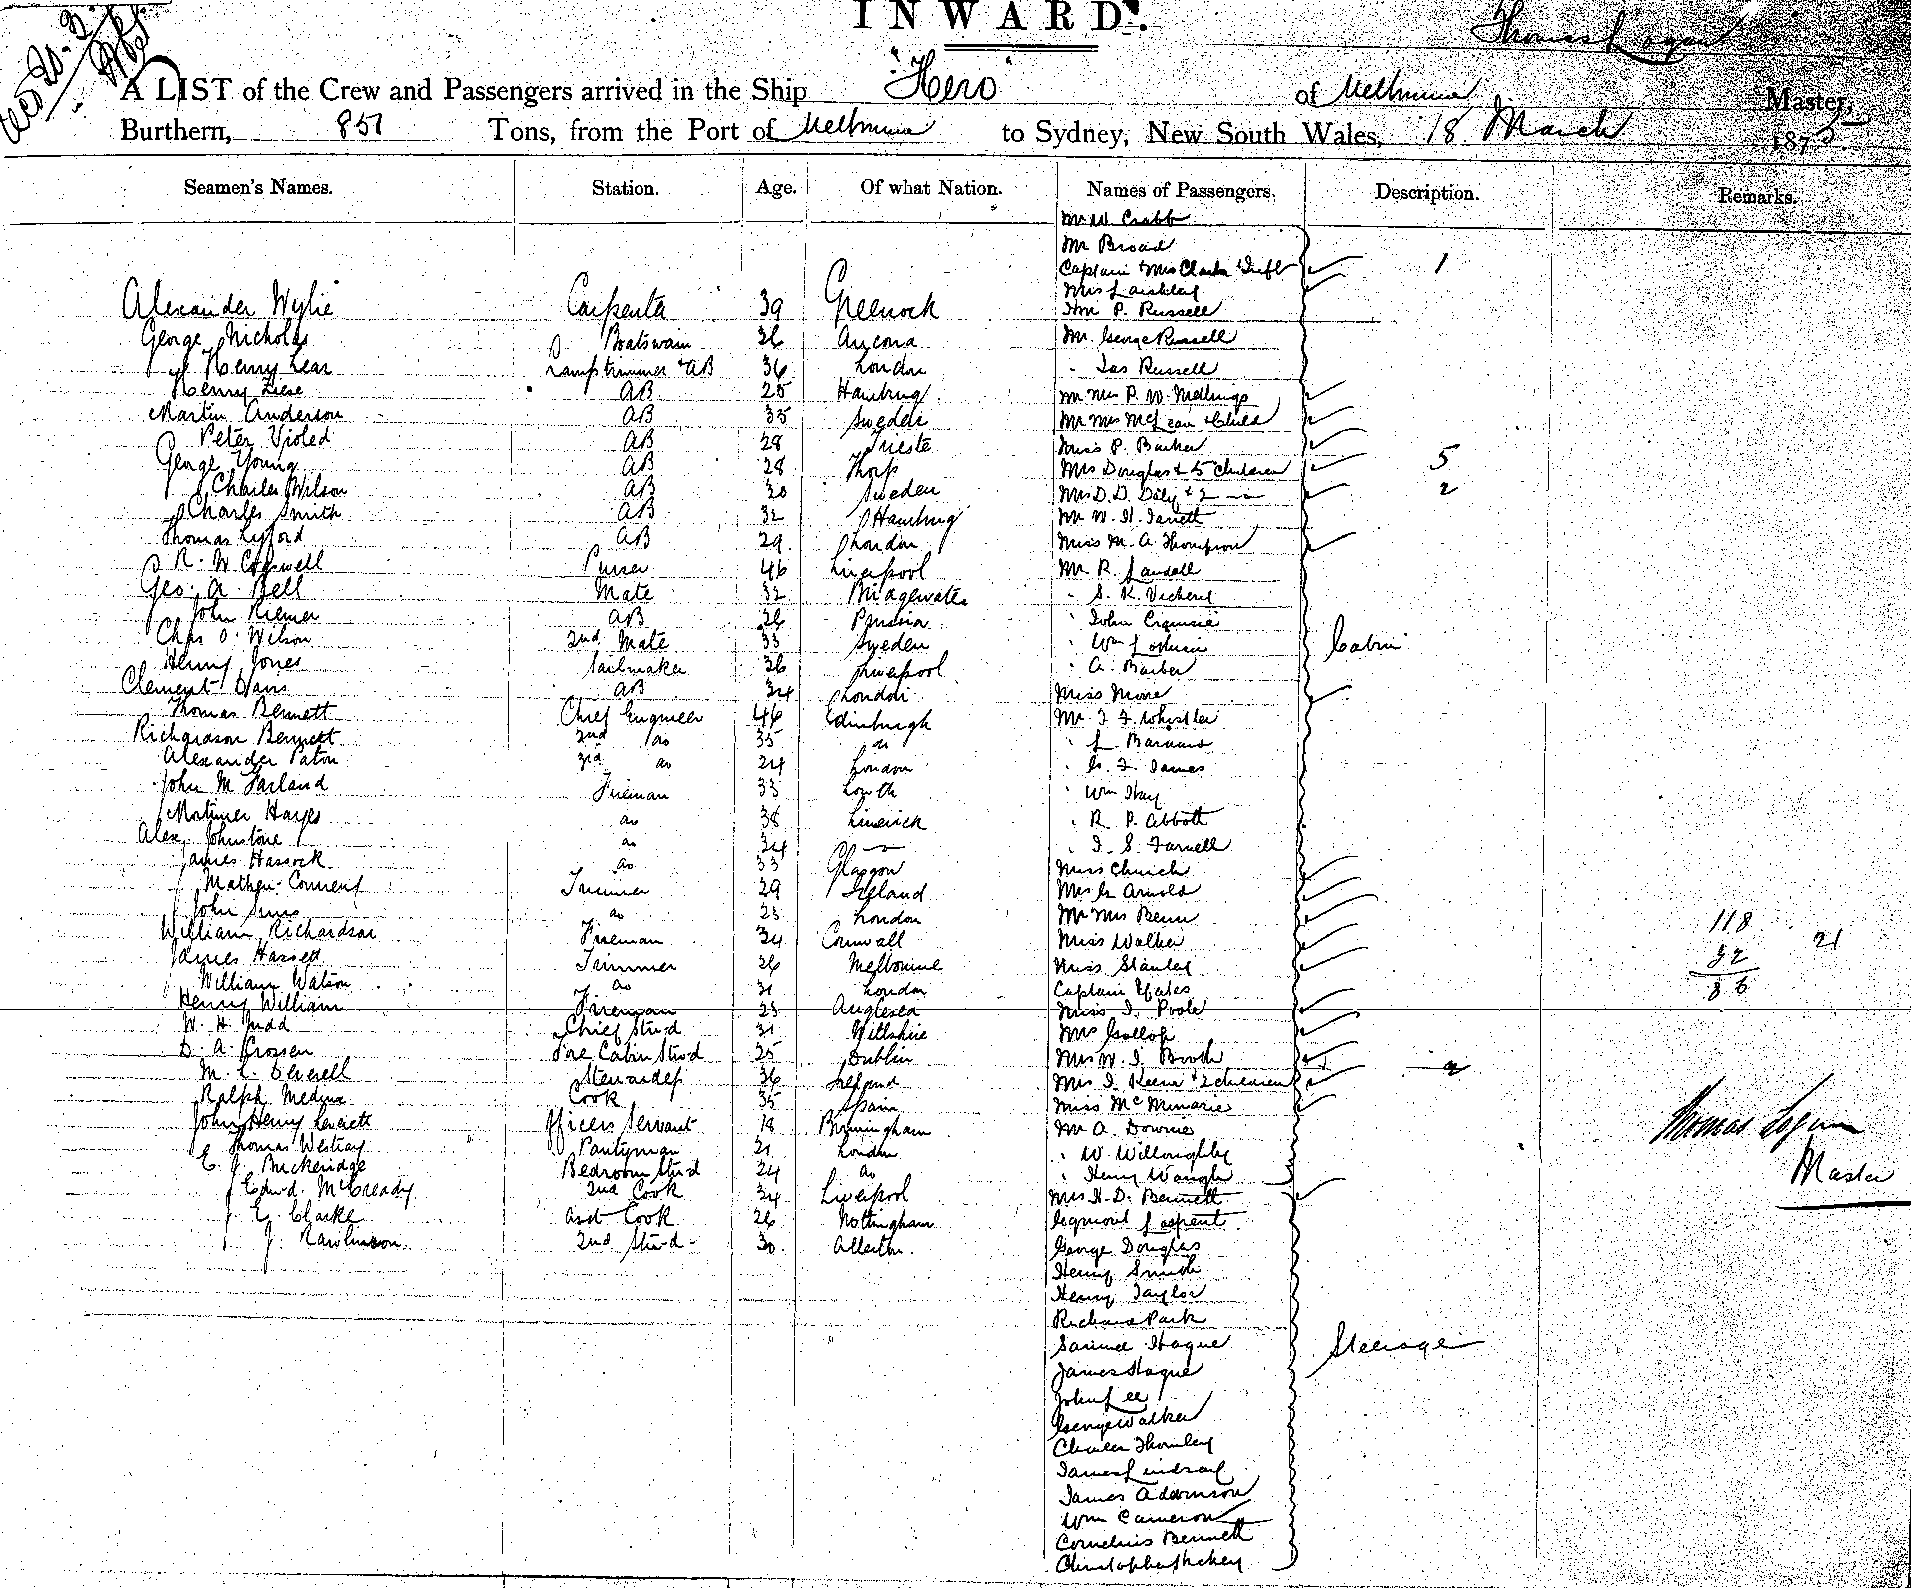 INWARD.
Thomas Logan
A LIST of the Crew and Passengers arrived in the Ship "Hero" of Melbourne Master,
Burthern, 851 Tons, from the Port of Melbourne to Sydney, New South Wales, 18 March 1875
Seamen's Names. Station. Age. Of what Nation. Names of Passengers. Description. Remarks.
Mr W. Crabb
Mr Broad
Captain & Mrs Clarke & Inft 1
Alexander Wylie Carpenter 39 Greenock
Hon P. Russell
George Nicholas Boatswain 36 Ancona Mr George Russell
Henry Lear Lamptrimmer & AB 36 London Jas Russell
Henry Liese AB 25 Hamburg Mr Mrs P. W.
Martin Anderson AB 35 Sweden Mr Mrs McLean & Child
Peter AB 28 Trieste Miss P. Barker
George Young AB 28 Mrs Douglas & 5 Children 5
Charles Wilson AB 30 Sweden Mrs D. D. & 2 — 2
Charles Smith AB 32 Hamburg Mr W. H.
Thomas AB 29 London Miss M. A. Thompson
R. W. Purser 46 Liverpool Mr R.
Geo. A. Bell Mate 32 Bridgewater S. K.
John Riemer AB 26 Prussia John
Chas O. Wilson 2nd Mate 33 Sweden Wm
Cabin
Henry Jones Sailmaker 36 Liverpool A. Barber
Clement Davis AB 34 London Miss Moore
Thomas Bennett Chief Engineer 46 Edinburgh Mr J. F. Whistler
Richardson Bennett 2nd do 35 do L.
Alexander Paton 3rd do 24 London G. F. James
John McFarland Fireman 33 Louth Wm Hay
Mortimer Hayes do 38 Limerick R. P. Abbott
Alex Johnstone do 34 — J. S. Farnell
James Hassock do 33 Glasgow Miss Church
Mathew Trimmer 29 Ireland Mrs G. Arnold
John Sims do 23 London Mr Mrs Benn
118
William Richardson Fireman 34 Cornwall Miss Walker
21
James Trimmer 26 Melbourne Miss Stanley
32
William Watson do 31 London Captain Yates
86
Henry William Fireman 23 Anglesea Miss J. Poole
W. H. Judd Chief Stwd 31 Wiltshire Mrs Gollop
D. A. Crossen Fore Cabin Stwd 25 Dublin Mrs W. J. Booth
M. L. Deverell Stewardess 36 Ireland Mrs J. Keen & 2 children 2
Ralph Medina Cook 35 Spain Miss
John Henry Leverett Officers Servant 18 Birmingham Mr A. Downie
Thomas Logan
Thomas Westray Pantryman 21 London W. Willoughby
E. J. Buckeridge Bedroom Stwd 24 do Henry Waugh
Master
Edwd. McCready 2nd Cook 34 Liverpool Mrs H. D. Bennett
E. Clarke Asst Cook 26 Nottingham
J. Rawlinson 2nd Stwd 30 George Douglas
Henry Smith
Henry Taylor
Richard Park
Samuel Hague
Steerage
James Hague
John Lee
George Walker
Charles Thornley
James Lindsay
James Adamson
Wm Cameron
Cornelius Bennett
Christopher Hickey